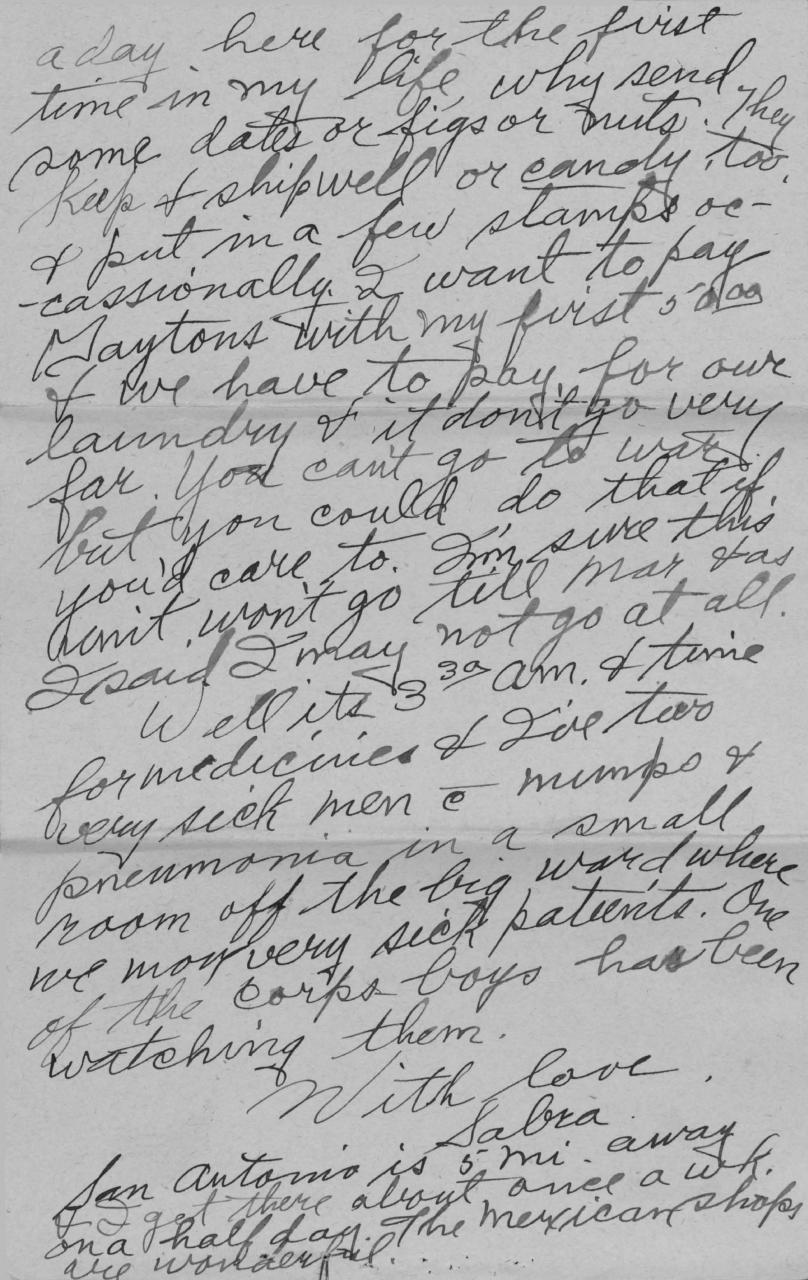 a day here for the first
time in my life, why send
some dates or figs or nuts. They
keep & ship well or candy, too,
& put in a few stamps oc-
-cassionally. I want to pay
Taytons with my first 50.00
& we have to pay for our
laundry & it don't go very
far. You can't go to war
but you could do that if
you'd care to. I'm sure this
unit won't go till Mar & as
I said I may not go at all.
Well its 3 30 am. & time
for medicines & I've two
very sick men c̄ mumps &
pneumonia in a small
room off the big ward where
we mov very sick patients. One
of the corps boys has been
watching them.
With love,
Sabra
San Antonio is 5 mi. away
& I get there about once a wk.
on a half day. The Mexican shops
are wonderful...